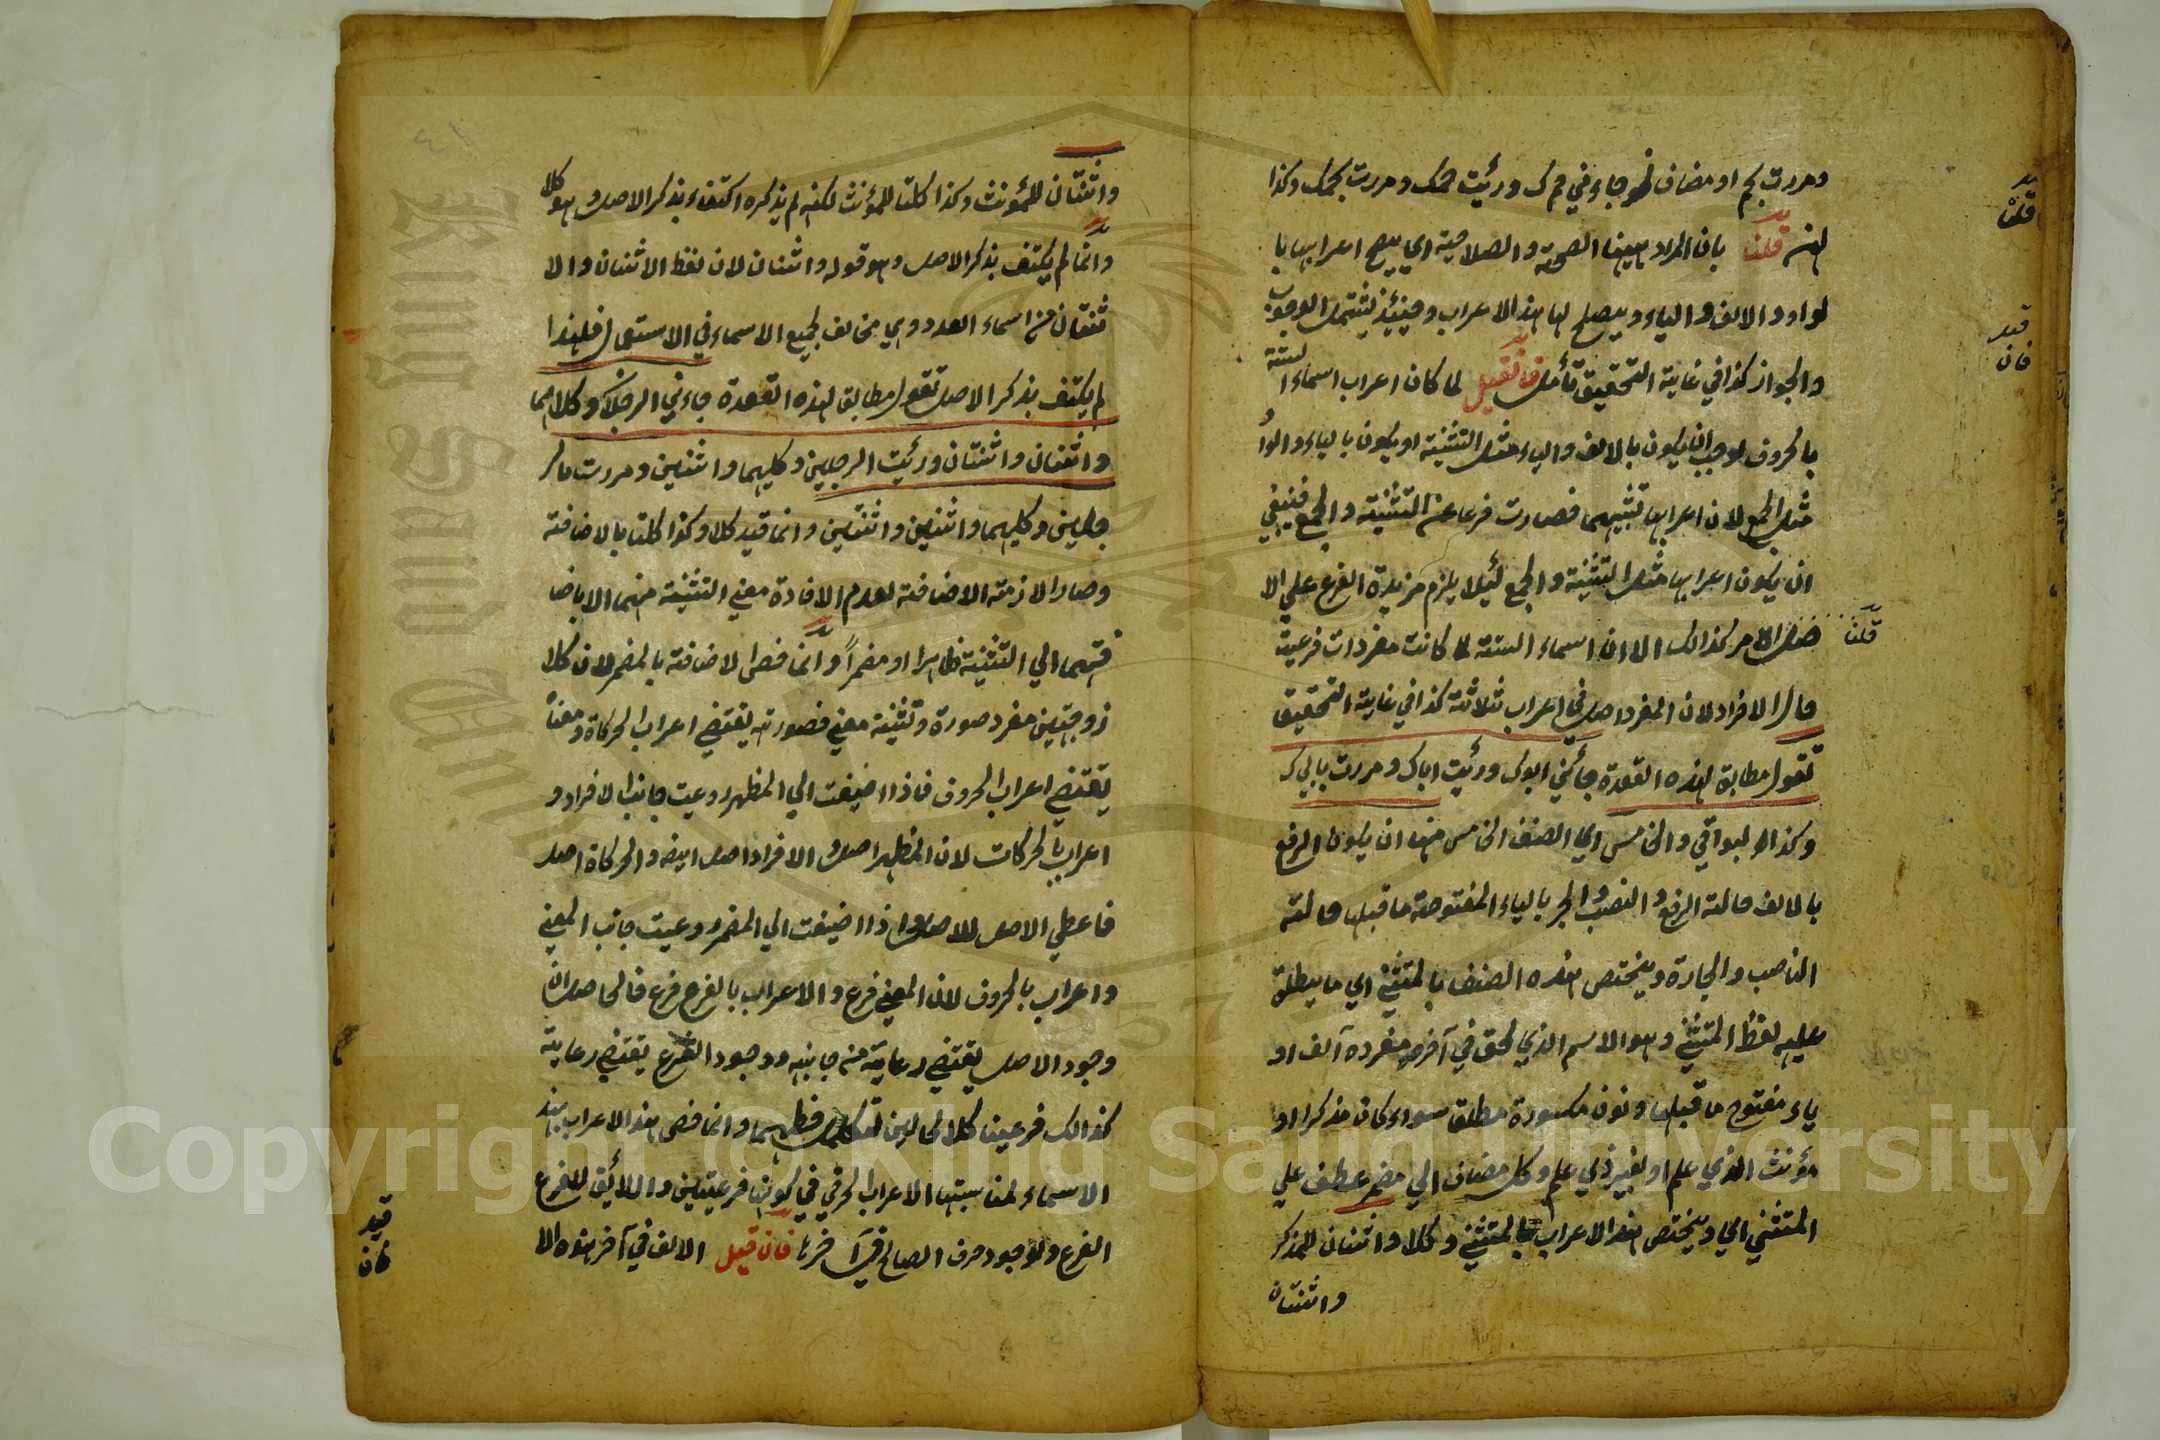 ومررت بحم او مضاف نحو جاءني حمك ورئيت حمك ومررت بحمك وكذا
لهن قلنا بان المراد بهينا الصحة والصلاحية اي يصح اعرابها با
لواو والالف والياء ويصلح لها هذا الاعراب وحينئذ يشتمل الوجوب
والجواز كذا في غاية التحقيق تأمل فان قيل لما كان اعراب اسماء الستة
بالحروف لوجب ان يكون بالالف والياء مثل التثنية او يكون بالياء والواو
مثل الجمع لان اعرابها تشبيهما فصارت فرعا عن التثنية والجمع فينبغي
ان يكون اعرابها مثل التثنية والجمع لئيلا يلزم مزيدة الفرع علي الا
صل الامر كذالك الا ان اسماء الستة لما كانت مفردات فرعيت
حال الافراد لان المفرد اصل في اعراب ثلاثة كذا في غاية التحقيق
تقول مطابقة لهذه القعدة جائني ابوك ورئيت اباك ومررت بابيك
وكذا البواقي والخامس اي الصنف الخامس منها ان يكون الرفع
بالالف حالة الرفع والنصب والجر بالياء المفتوحة ما قبلها حالة
الناصب والجارة ويختص هذه الصنف بالمثني اي ما يطلق
عليه لفظ المثني وهو الاسم الذي لحق في آخره مفرده آلف او
ياء مفتوح ما قبلها ونون مكسورة مطلق سواء كان مذكرا او
مؤنث الذي علم او لغير ذي علم وكل مضاف الي مضمر عطف علي
المثني اي ويختص هذا الاعراب بالمثني وكلا واثنان للمذكر
واثنتان
قلنا
قيد
فان
قلنا
واثنتان للمؤنث وكذا كلتا للمؤنث لكنه لم يذكره اكتفاء بذكر الاصل وهو كلا
وانما لم يكتف بذكر الاصل وهو قوله واثنان لان لفظ الاثنان والا
ثنتان من اسماء العدد وهي مخالف لجميع الاسماء في الاستعمال فلهذا
لم يكتف بذكر الاصل تقول مطابق لهذه القعدة جاءني الرجلان وكلاهما
واثنان واثنتان ورئيت الرجلين وكليهما واثنين ومررت بالر
جلين وكليهما واثنين واثنتين وانما قيد كلا وكذا كلتا بالاضافة
وصار الازمته الاضافة لعدم الافادة معني التثنية منهما الا باضا
فتهما الي التثنية ظاهرا او مضمرا وانما خص الاضافة بالمضمر لان كلا
زوجتين مفرد صورة وتثنية معني فصورته يقتضي اعراب الحركاة ومعناه
يقتضي اعراب الحروف فاذا اضيفت الي المظهر روعيت جانب الافراد و
اعراب بالحركات لان المظهر اصل والافراد اصل ايضا والحركاة اصل
فاعطي الاصل للاصل واذا اضيفت الي المضمر روعيت جانب المعني
واعراب بالحروف لان المعني فرع والاعراب بالفرع فرع فالحاصل ان
وجود الاصل يقتضي رعاية من جانبه ووجود الفرع يقتضي رعاية
كذالك فرعينا كلا الحالين فظهر وانما خص هذا الاعراب بهذه
الاسماء لمناسبتها الاعراب الحرفي في كونها فرعيتين والائق للفرع
الفرع ولوجود حرف الصالح في آخرها فان قيل الالف في آخر هذه الا
قيد
فان
Copyright © King Saud University
King Saud Univ
1957